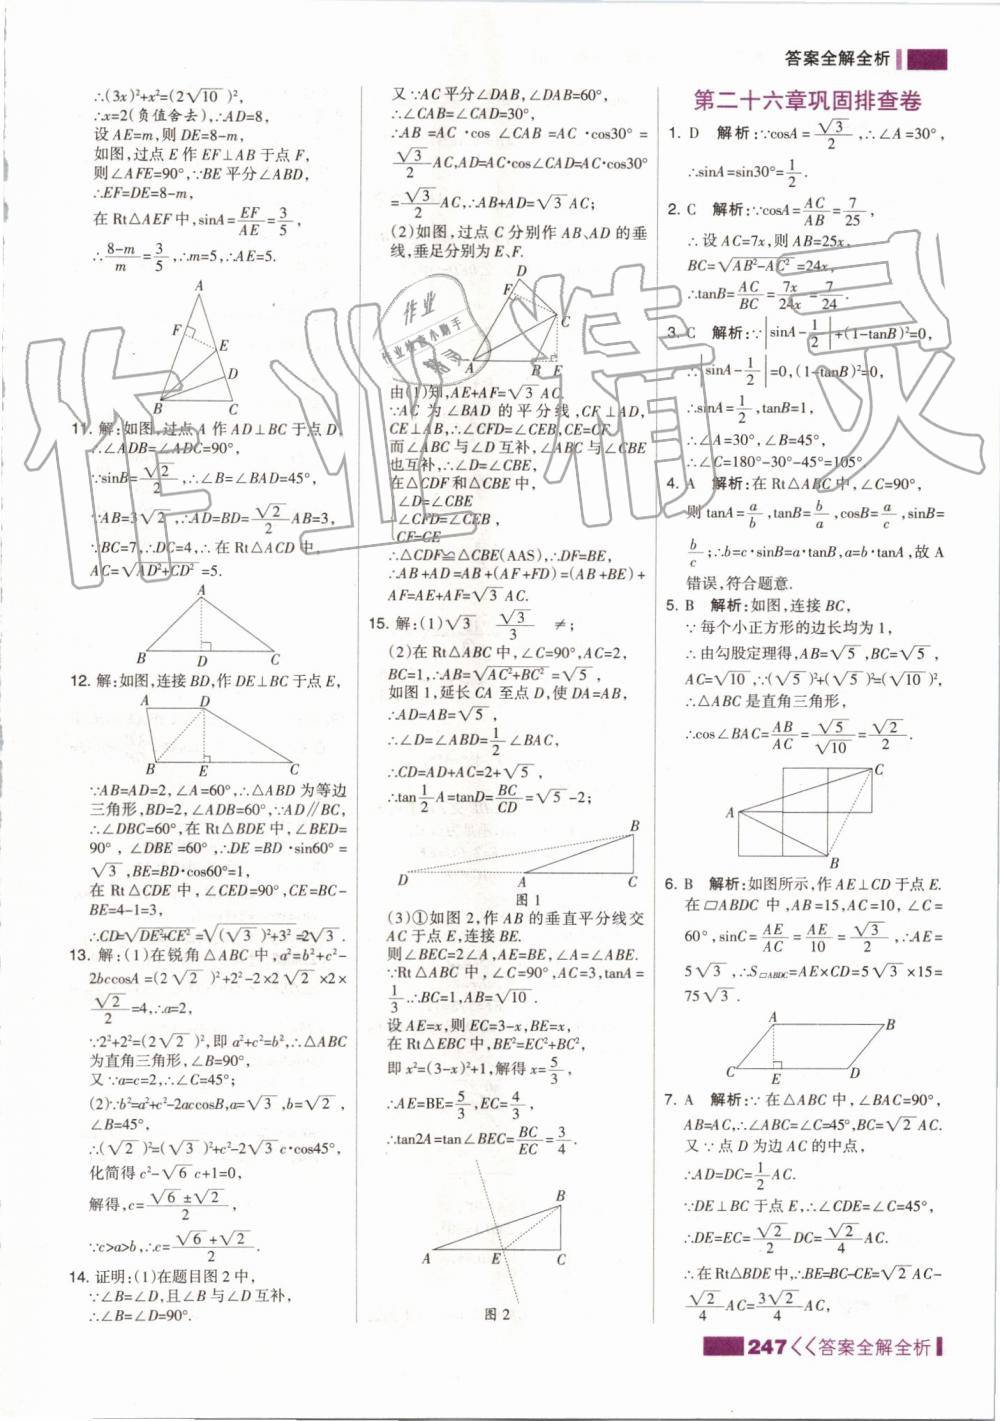 答案全解全析
∴(3x)²+x²=(2√10)²,
∴x=2(负值舍去),∴AD=8,
设AE=m,则DE=8-m,
如图,过点E作EF⊥AB于点F,
则∠AFE=90°,∵BE平分∠ABD,
∴EF=DE=8-m,
在Rt△AEF中,sinA=EF/AE=3/5,
∴(8-m)/m=3/5,∴m=5,∴AE=5.
A
F
E
D
B
C
11. 解:如图,过点A作AD⊥BC于点D,
∴∠ADB=∠ADC=90°,
∵sinB=√2/2,∴∠B=∠BAD=45°,
∵AB=3√2,∴AD=BD=√2/2AB=3,
∵BC=7,∴DC=4,∴在Rt△ACD中,
AC=√(AD²+CD²)=5.
A
B D C
12. 解:如图,连接BD,作DE⊥BC于点E,
A D
B E C
∵AB=AD=2,∠A=60°,∴△ABD为等边
三角形,BD=2,∠ADB=60°,∵AD∥BC,
∴∠DBC=60°,在Rt△BDE中,∠BED=
90°,∠DBE=60°,∴DE=BD·sin60°=
√3,BE=BD·cos60°=1,
在Rt△CDE中,∠CED=90°,CE=BC-
BE=4-1=3,
∴CD=√(DE²+CE²)=√((√3)²+3²)=2√3.
13. 解:(1)在锐角△ABC中,a²=b²+c²-
2bccosA=(2√2)²+2²-2×2√2×2×
√2/2=4,∴a=2,
∵2²+2²=(2√2)²,即a²+c²=b²,∴△ABC
为直角三角形,∠B=90°,
又∵a=c=2,∴∠C=45°;
(2)∵b²=a²+c²-2accosB,a=√3,b=√2,
∠B=45°,
∴(√2)²=(√3)²+c²-2√3c·cos45°,
化简得c²-√6c+1=0,
解得,c=(√6±√2)/2,
∵c>a>b,∴c=(√6+√2)/2.
14. 证明:(1)在题目图2中,
∵∠B=∠D,且∠B与∠D互补,
∴∠B=∠D=90°.
又∵AC平分∠DAB,∠DAB=60°,
∴∠CAB=∠CAD=30°,
∴AB=AC·cos∠CAB=AC·cos30°=
√3/2AC,AD=AC·cos∠CAD=AC·cos30°
=√3/2AC,∴AB+AD=√3AC;
(2)如图,过点C分别作AB、AD的垂
线,垂足分别为E、F.
D
F
C
A B E
由(1)知,AE+AF=√3AC.
∵AC为∠BAD的平分线,CF⊥AD,
CE⊥AB,∴∠CFD=∠CEB,CE=CF.
而∠ABC与∠D互补,∠ABC与∠CBE
也互补,∴∠D=∠CBE,
在△CDF和△CBE中,
∠D=∠CBE
∠CFD=∠CEB,
CF=CE
∴△CDF≌△CBE(AAS),∴DF=BE,
∴AB+AD=AB+(AF+FD)=(AB+BE)+
AF=AE+AF=√3AC.
15. 解:(1)√3 √3/3 ≠;
(2)在Rt△ABC中,∠C=90°,AC=2,
BC=1,∴AB=√(AC²+BC²)=√5,
如图1,延长CA至点D,使DA=AB,
∴AD=AB=√5,
∴∠D=∠ABD=1/2∠BAC,
∴CD=AD+AC=2+√5,
∴tan1/2A=tanD=BC/CD=√5-2;
B
D A C
图1
(3)①如图2,作AB的垂直平分线交
AC于点E,连接BE.
则∠BEC=2∠A,AE=BE,∠A=∠ABE.
∵Rt△ABC中,∠C=90°,AC=3,tanA=
1/3,∴BC=1,AB=√10.
设AE=x,则EC=3-x,BE=x,
在Rt△EBC中,BE²=EC²+BC²,
即x²=(3-x)²+1,解得x=5/3,
∴AE=BE=5/3,EC=4/3,
∴tan2A=tan∠BEC=BC/EC=3/4
B
A E C
图2
第二十六章巩固排查卷
1. D 解析:∵cosA=√3/2,∴∠A=30°,
∴sinA=sin30°=1/2.
2. C 解析:∵cosA=AC/AB=7/25,
∴设AC=7x,则AB=25x,
BC=√(AB²-AC²)=24x,
∴tanB=AC/BC=7x/24x=7/24.
3. C 解析:∵|sinA-1/2|+(1-tanB)²=0,
∴|sinA-1/2|=0,(1-tanB)²=0,
∴sinA=1/2,tanB=1,
∴∠A=30°,∠B=45°,
∴∠C=180°-30°-45°=105°
4. A 解析:在Rt△ABC中,∠C=90°,
则tanA=a/b,tanB=b/a,cosB=a/c,sinB=
b/c;∴b=c·sinB=a·tanB,a=b·tanA,故A
错误,符合题意.
5. B 解析:如图,连接BC,
∵每个小正方形的边长均为1,
∴由勾股定理得,AB=√5,BC=√5,
AC=√10,∵(√5)²+(√5)²=(√10)²,
∴△ABC是直角三角形,
∴cos∠BAC=AB/AC=√5/√10=√2/2.
C
A
B
6. B 解析:如图所示,作AE⊥CD于点E.
在▱ABDC中,AB=15,AC=10,∠C=
60°,sinC=AE/AC=AE/10=√3/2,∴AE=
5√3,∴S▱ABDC=AE×CD=5√3×15=
75√3.
A B
C E D
7. A 解析:∵在△ABC中,∠BAC=90°,
AB=AC,∴∠ABC=∠C=45°,BC=√2AC.
又∵点D为边AC的中点,
∴AD=DC=1/2AC.
∵DE⊥BC于点E,∴∠CDE=∠C=45°,
∴DE=EC=√2/2DC=√2/4AC.
∴在Rt△BDE中,∴BE=BC-CE=√2AC-
√2/4AC=3√2/4AC,
247<<答案全解全析
作业精灵
作业
作业检查小助手
精灵